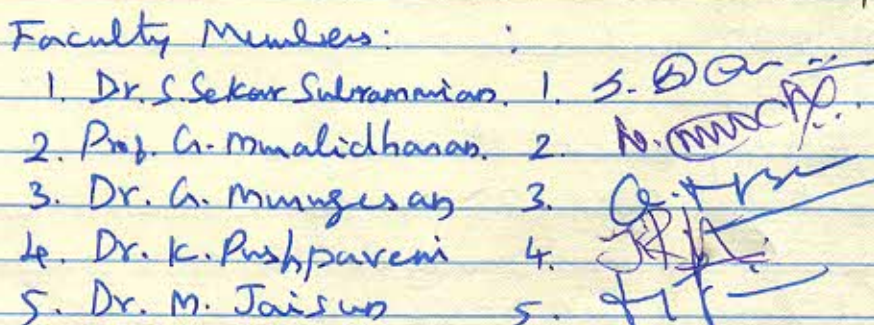 Faculty Members: :
1. Dr. S. Sekar Subramanian. 1. S.
2. Prof. G. Muralidharan. 2.
3. Dr. G. Murugesan 3.
4. Dr. K. Pushpaveni 4.
5. Dr. M. Jaisun 5.